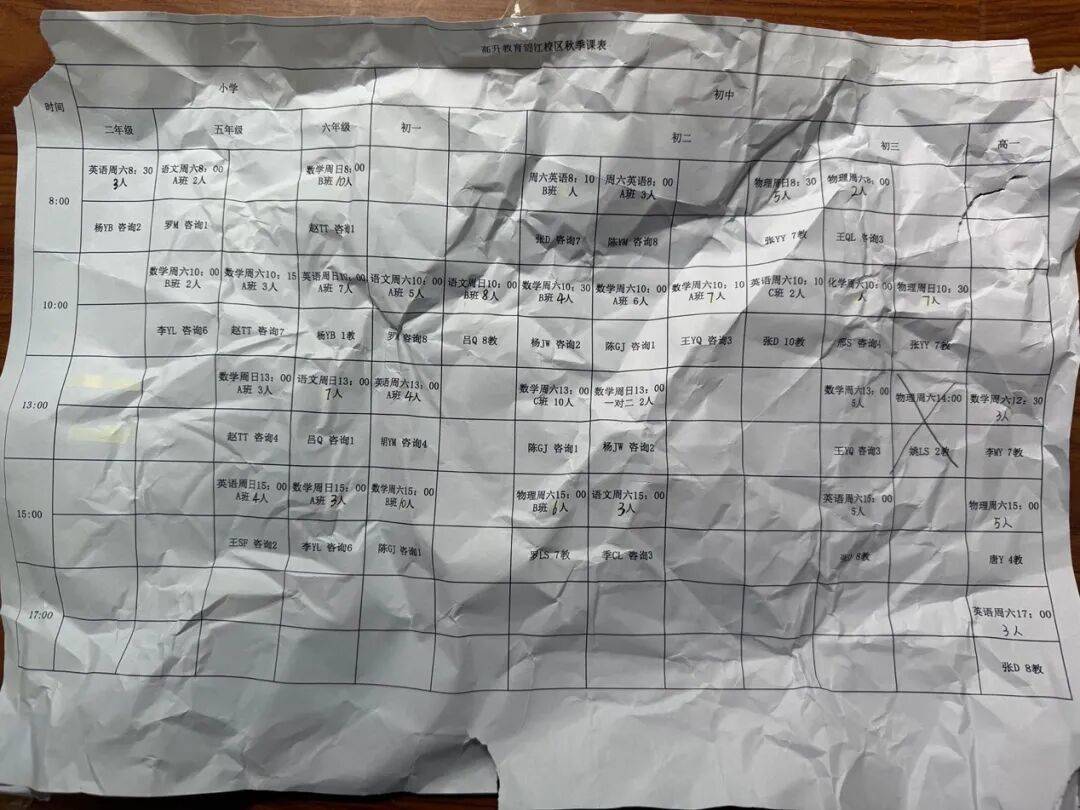 高升教育锦江校区秋季课表
时间 小学 初中
二年级 五年级 六年级 初一 初二 初三 高一
8:00
英语周六8:30 语文周六8:00 数学周日8:00 周六英语8:10 周六英语8:00 物理周日8:30 物理周六8:00
3人 A班 2人 B班 10人 B班 人 A班 3人 5人 2人
杨YB 咨询2 罗M 咨询1 赵TT 咨询1 张D 咨询7 陈YM 咨询8 张YY 7教 王QL 咨询3
10:00
数学周六10:00 数学周六10:15 英语周日10:00 语文周六10:00 语文周日10:00 数学周六10:30 数学周六10:00 数学周六10:10 英语周六10:10 化学周六10:00 物理周日10:30
B班 2人 A班 3人 A班 7人 A班 5人 B班 8人 B班 4人 A班 6人 A班 7人 C班 2人 人 7人
李YL 咨询6 赵TT 咨询7 杨YB 1教 罗M 咨询8 吕Q 8教 杨JW 咨询2 陈GJ 咨询1 王YQ 咨询3 张D 10教 S 咨询4 张YY 7教
13:00
数学周日13:00 语文周日13:00 英语周六13:00 数学周六13:00 数学周日13:00 数学周六13:00 物理周六14:00 数学周六12:30
A班 3人 7人 A班 4人 C班 10人 一对二 2人 5人 3人
赵TT 咨询4 吕Q 咨询1 胡YM 咨询4 陈GJ 咨询1 杨JW 咨询2 王YQ 咨询3 姚LS 2教 李MY 7教
15:00
英语周日15:00 数学周日15:00 数学周六15:00 物理周六15:00 语文周六15:00 英语周六15:00 物理周六15:00
A班 4人 A班 3人 B班 10人 B班 6人 3人 5人 5人
王SF 咨询2 李YL 咨询6 陈GJ 咨询1 罗LS 7教 季CL 咨询3 张D 8教 唐Y 4教
17:00
英语周六17:00
3人
张D 8教